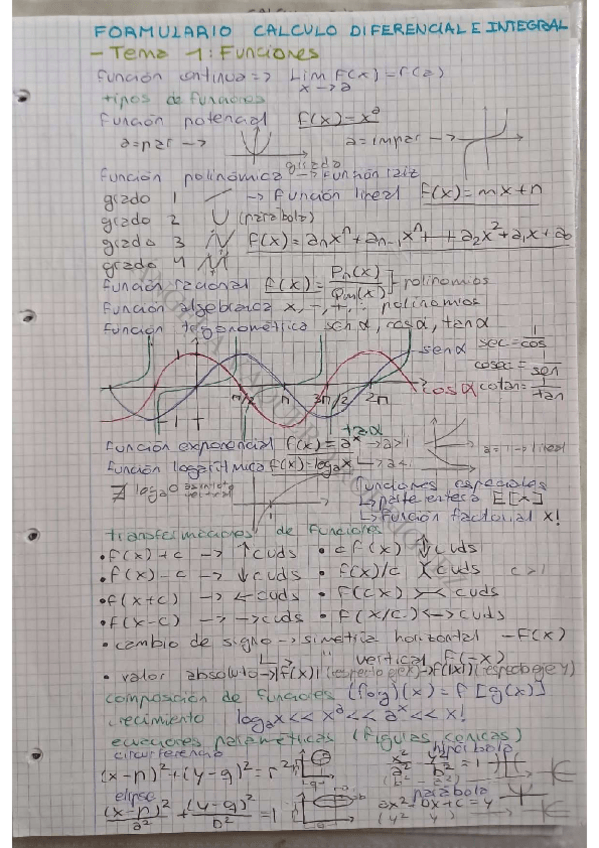 FORMULARIO CALCULO DIFERENCIAL E INTEGRAL
- Tema 1: Funciones
Función continua => Lim f(x) = f(a)
x -> a
tipos de funciones
Función potencial f(x) = x^a
a = par -> a = impar ->
grado
Función polinómica -> función raiz
grado 1 -> función lineal f(x) = mx + n
grado 2 (parabola)
grado 3 f(x) = anx^n + an-1x^n + + a2x^2 + a1x + a0
grado 4
Función racional f(x) = Pn(x) / Qm(x) polinomios
Función algebraica x, -, +, ÷ polinomios
función trigonometrica sen α, cos α, tan α
sen α sec = 1/cos
cosec = 1/sen
cos α cotan = 1/tan
-1 1 π/2 π 3π/2 2π
tan α
función exponencial f(x) = a^x -> a>1
a = 1 -> lineal
función logaritmica f(x) = logax -> a<
∄ loga0 asintota vertical
1
funciones especiales
↳ parte entera E[x]
↳ función factorial x!
transformaciones de funciones
• f(x) + c -> ↑ c uds • c f(x) ↕ c uds
• f(x) - c -> ↓ c uds • f(x)/c c uds c > 1
• f(x+c) -> ← c uds • f(cx) >-< c uds
• f(x-c) -> → c uds • f(x/c) <-> c uds
• cambio de signo -> simetria horizontal - f(x)
↳ " vertical f(-x)
• valor absoluto -> |f(x)| (respecto eje x) -> f(|x|) (respecto eje y)
composición de funciones (fog)(x) = f[g(x)]
crecimiento logax << x^a << a^x << x!
ecuaciones paramétricas (figuras conicas)
circunferencia hipérbola
(x-p)^2 + (y-q)^2 = r^2 x^2/a^2 - y^2/b^2 = 1
elipse parabola
(x-p)^2/a^2 + (y-q)^2/b^2 = 1 ax^2 + bx + c = y
(y^2 y)